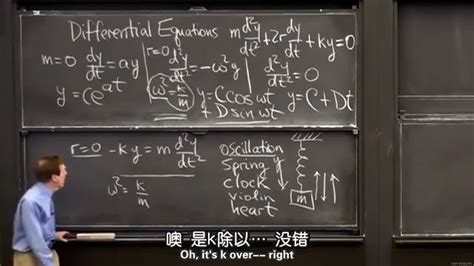 Differential Equations m d²y/dt² + 2r dy/dt + ky = 0
m=0 dy/dt = ay
y = ce^at
r=0 m d²y/dt² = -ω²y
ω² = k/m
y = C cos ωt
+ D sin ωt
d²y/dt² = 0
y = C + Dt
r=0 -ky = m d²y/dt²
ω² = k/m
oscillation
spring
clock
violin
heart
m
噢 是K除以… 没错
Oh, it's k over-- right